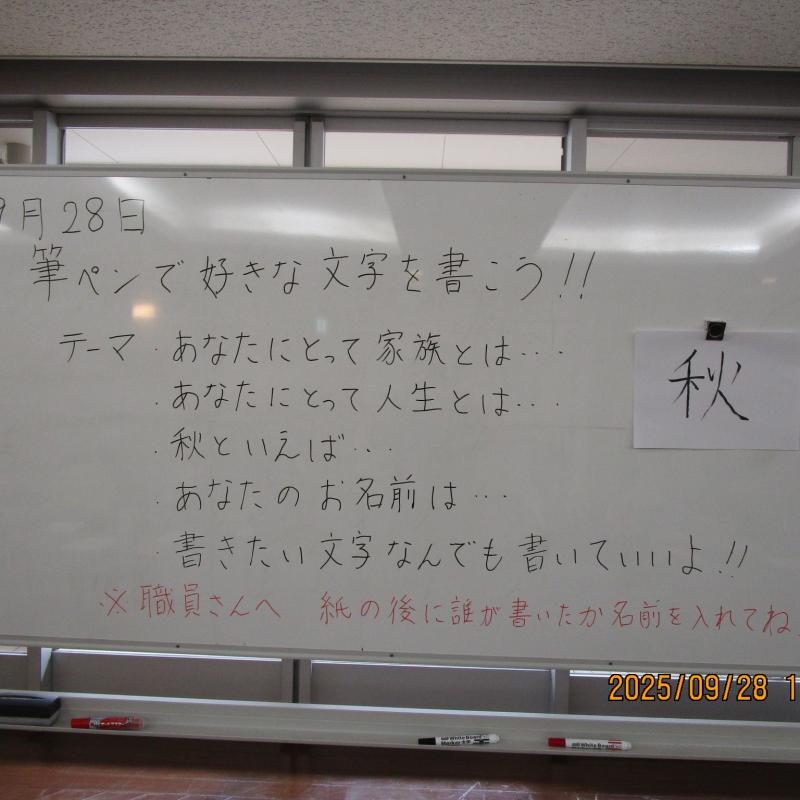 9月28日
筆ペンで好きな文字を書こう!!
テーマ・あなたにとって家族とは・・・
・あなたにとって人生とは・・・
・秋といえば・・・
・あなたのお名前は・・・
・書きたい文字なんでも書いていいよ!!
※職員さんへ 紙の後に誰が書いたか名前を入れてね
秋
2025/09/28 1
White Board Marker
White Board Marker